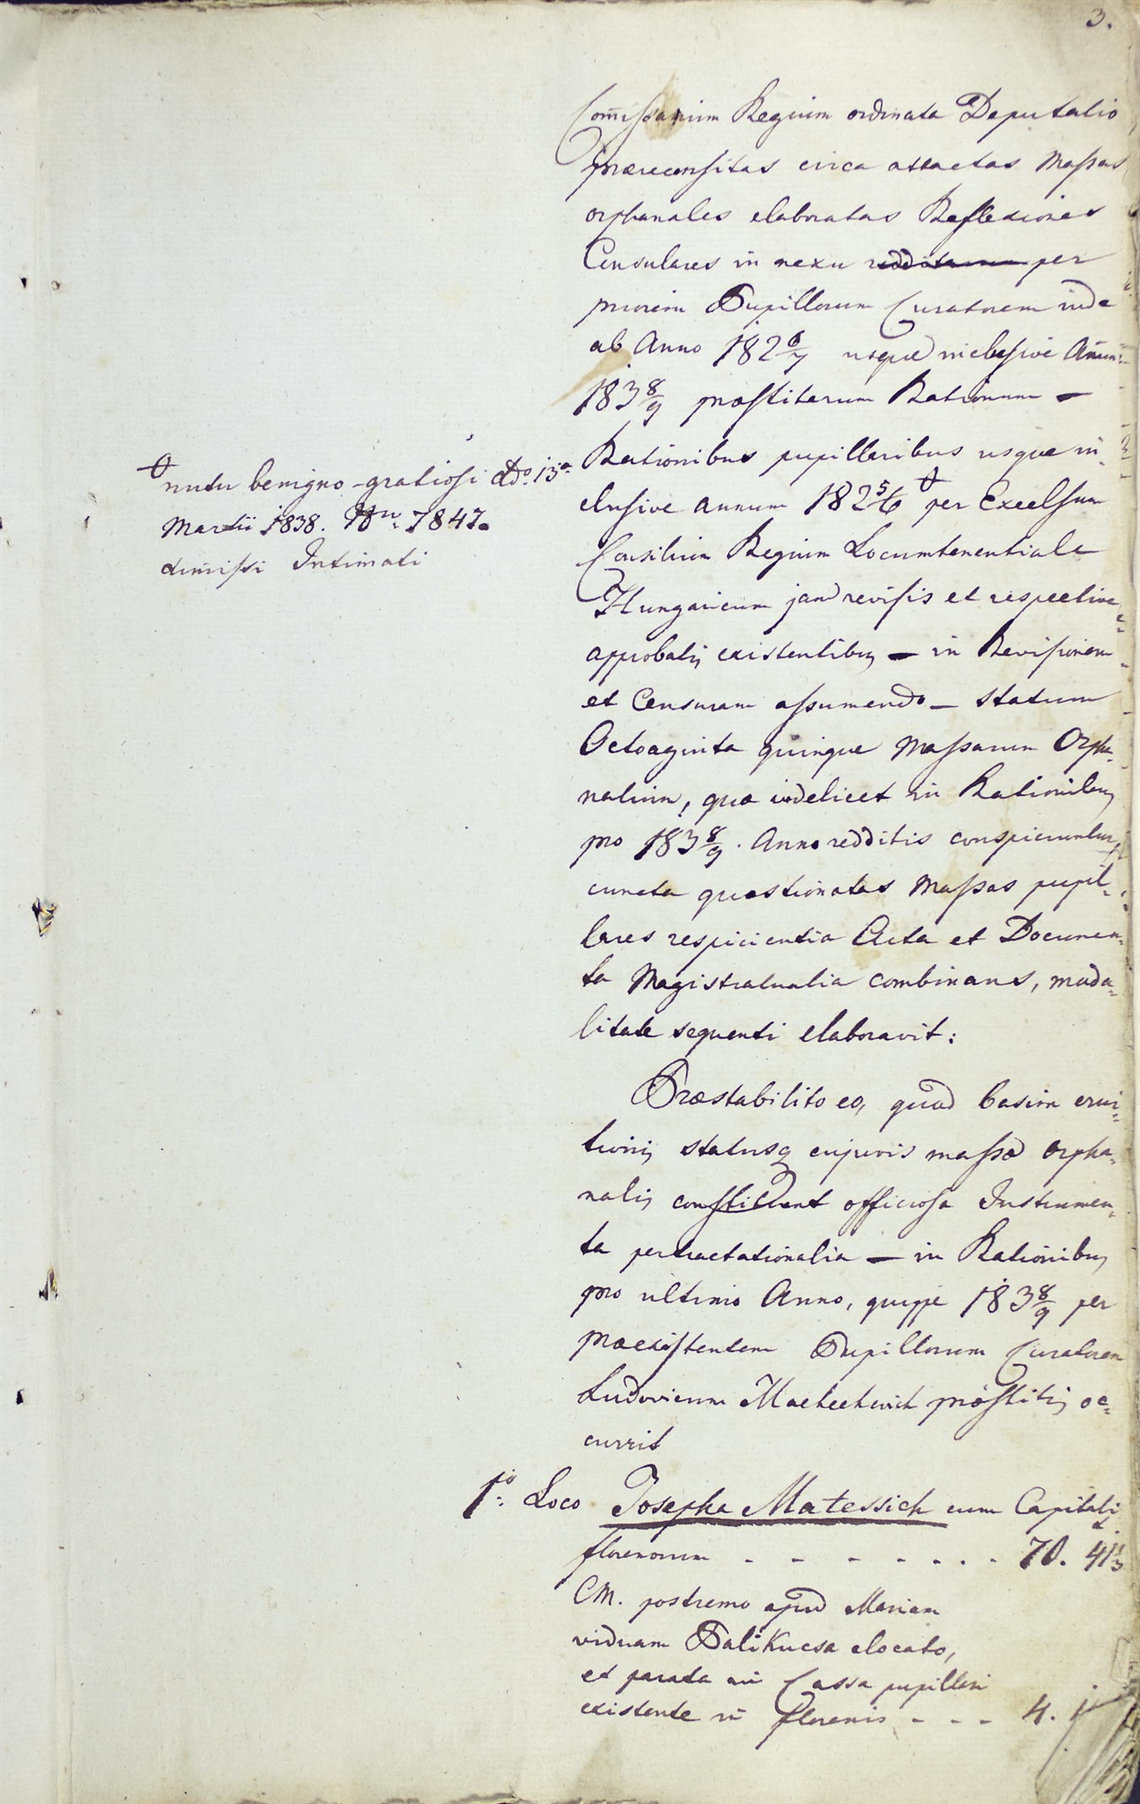 3.
Com̅issarium Regium ordinata Deputatio
præ recensitas circa attactas Massas
orphanales elaboratas Reflexiones
Censulares in nexu redditarum per
priorem Pupillorum Curatorem inde
ab Anno 182 6/7 usque inclusive Annum
183 8/9 præstitarum Rationum —
Rationibus pupillaribus usque in-
clusive annum 182 5/6 per Excelsum
Consilium Regium Locumtenentiale
Hungaricum jam revisis et respective
approbatis existentibus — in Revisionem
et Censuram assumendo — Statum
Octoaginta quinque Massarum Orpha-
nalium, quæ videlicet in Rationibus
pro 183 8/9. Anno redditis conspiciuntur,
cuncta quæstionatas Massas pupil-
lares respicientia Acta et Documen-
ta Magistratualia combinans, moda-
litate sequenti elaboravit:
nutu benigno-gratiosi ddo. 13a
Martii 1838. Nu: 7847.
dimissi Intimati
Præstabilito eo, quod basim erui-
tionis statusq cujusvis massæ orpha-
nalis constituant officiosa Instrumen-
ta pertractationalia — in Rationibus
pro ultimo Anno, quippe 183 8/9 per
præexistentem Pupillorum Curatorem
Ludovicum præstitis oc-
currit
1o: Loco Josepha Matessich cum Capitali
florenorum - - - - - - - 70. 41
CM. postremo apud Mariam
viduam Palikucsa elocato,
et parata in Cassa pupillari
existente in florenis - - - 4.